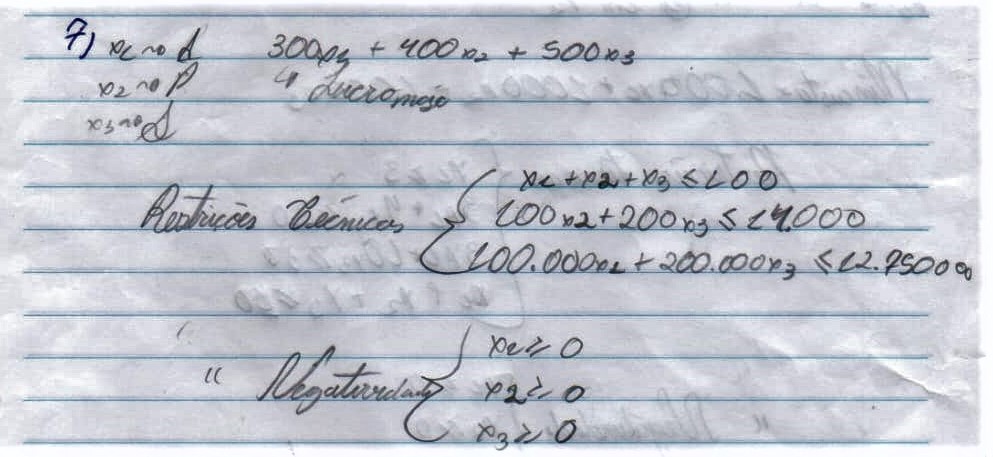 7) x1 ~> A 300x1 + 400x2 + 500x3
x2 ~> P ↳ Lucro máx
x3 ~> S
Restrições Técnicas { x1 + x2 + x3 ≤ 100
100x2 + 200x3 ≤ 14.000
100.000x2 + 200.000x3 ≤ 12.750000
" Negatividade { x1 ≥ 0
x2 ≥ 0
x3 ≥ 0